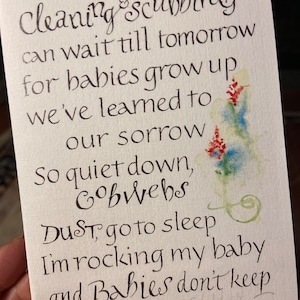 Cleaning & Scubbing
can wait till tomorrow
for babies grow up
we've learned to
our sorrow
So quiet down,
Cobwebs
Dust, go to sleep
I'm rocking my baby
and Babies don't keep